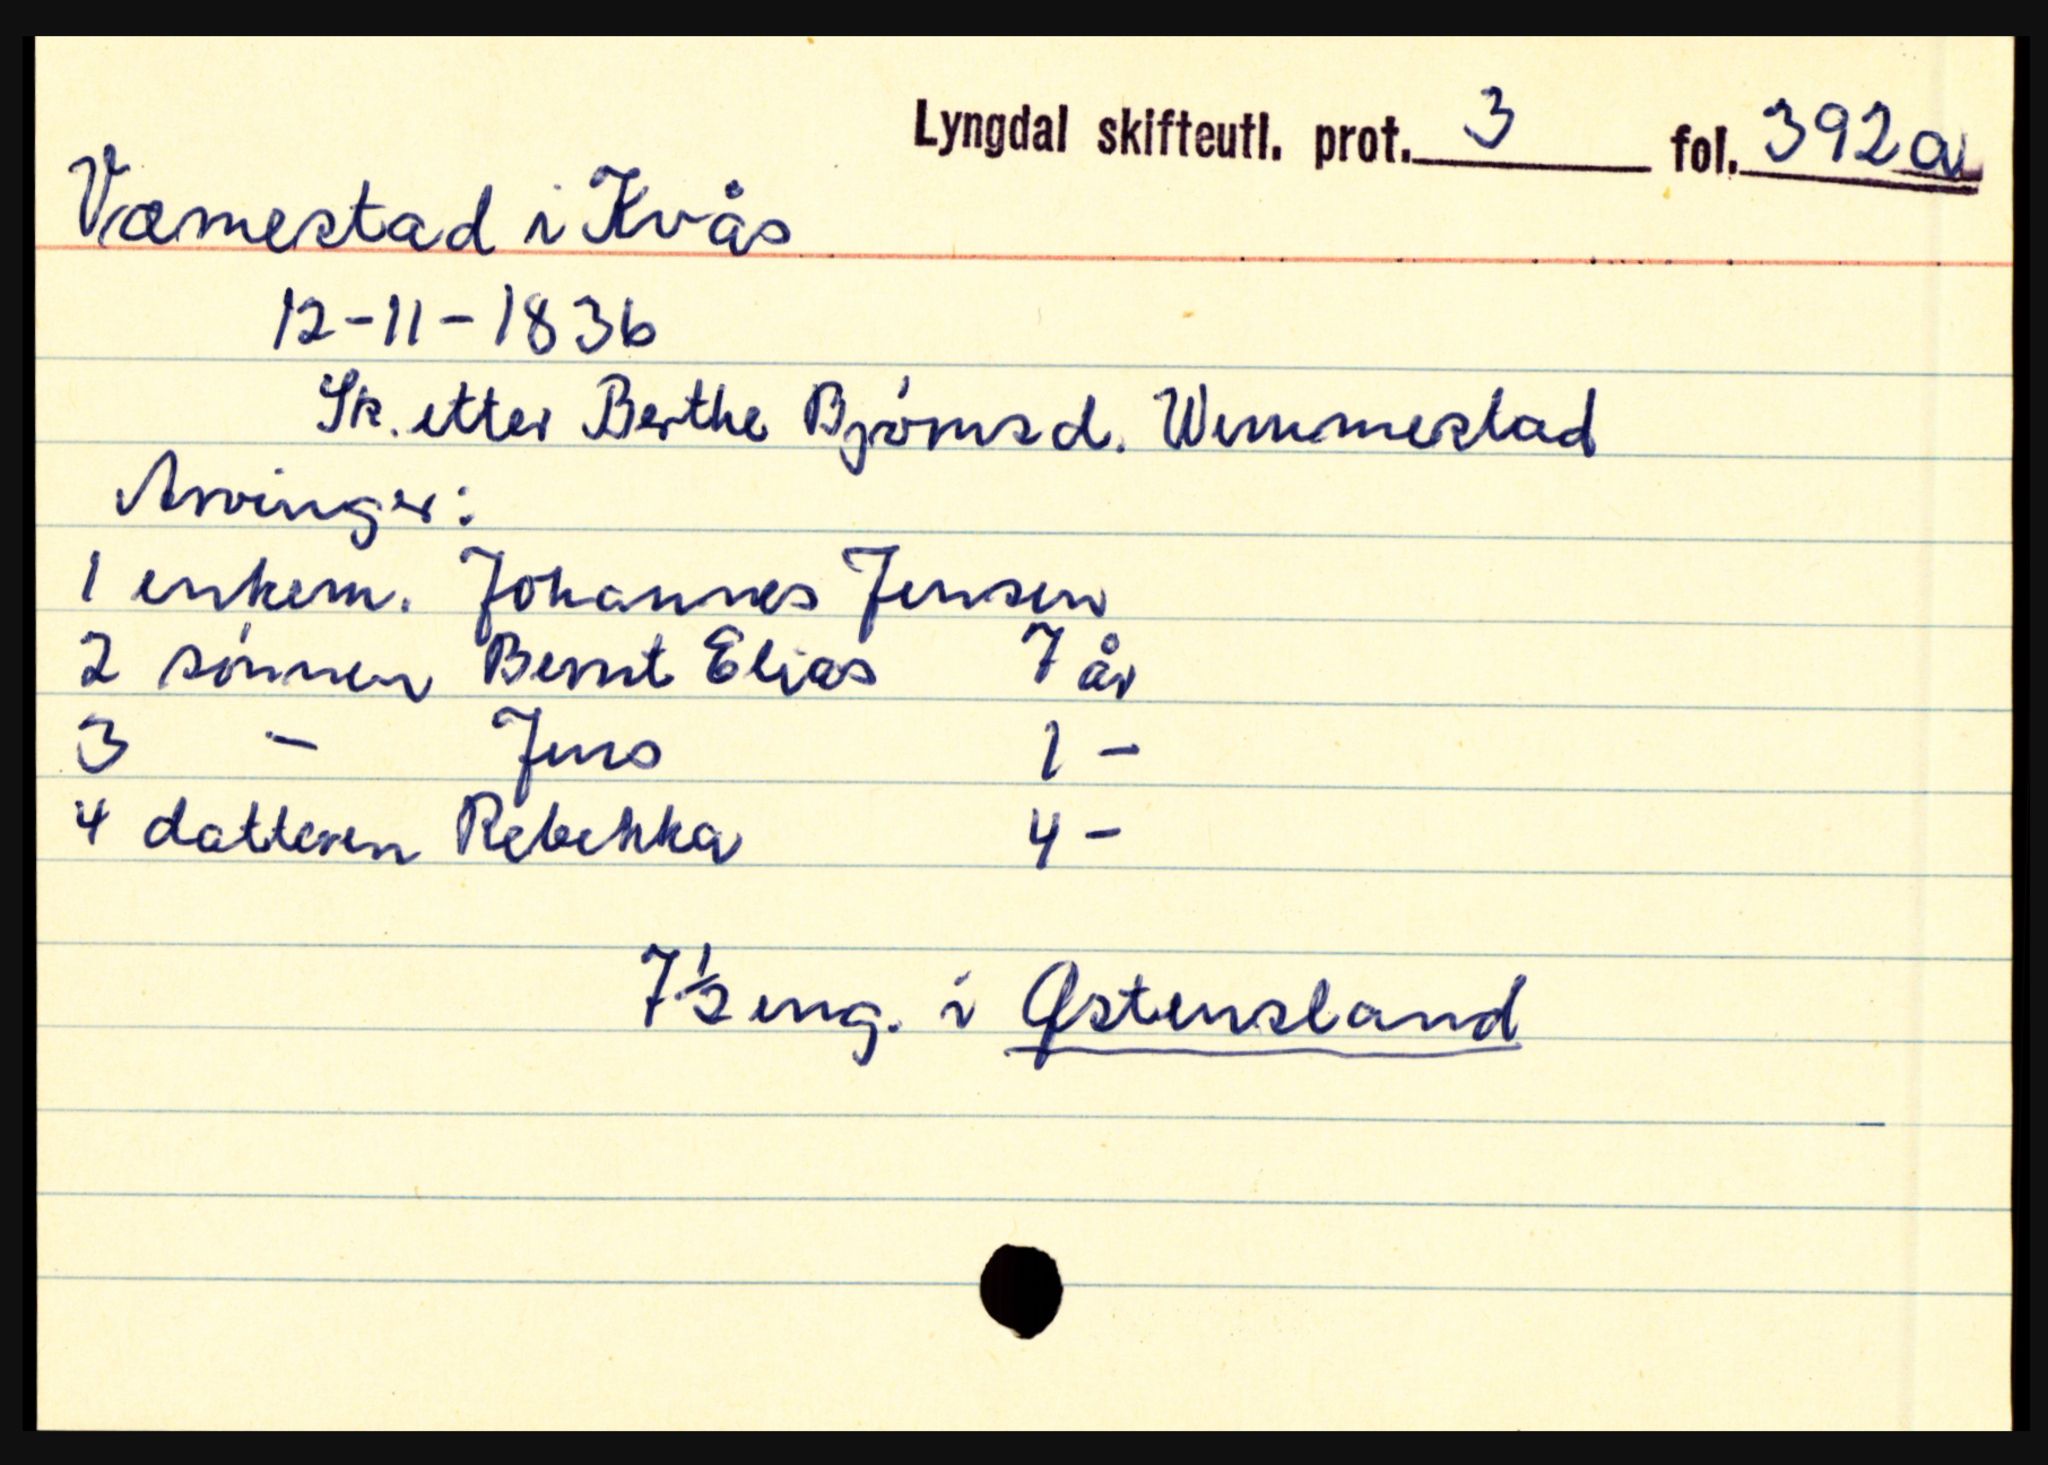 Lyngdal skifteutl. prot. 3 fol. 392a
Væmestad i Kvås
12-11-1836
Sk. etter Berthe Bjørnsd. Wemmestad
Arvinger:
1 enkem. Johannes Jensen
2 sønnen Bernt Elias 7 år
3 - Jens 1 -
4 datteren Rebekka 4 -
7½ eng. i Østensland